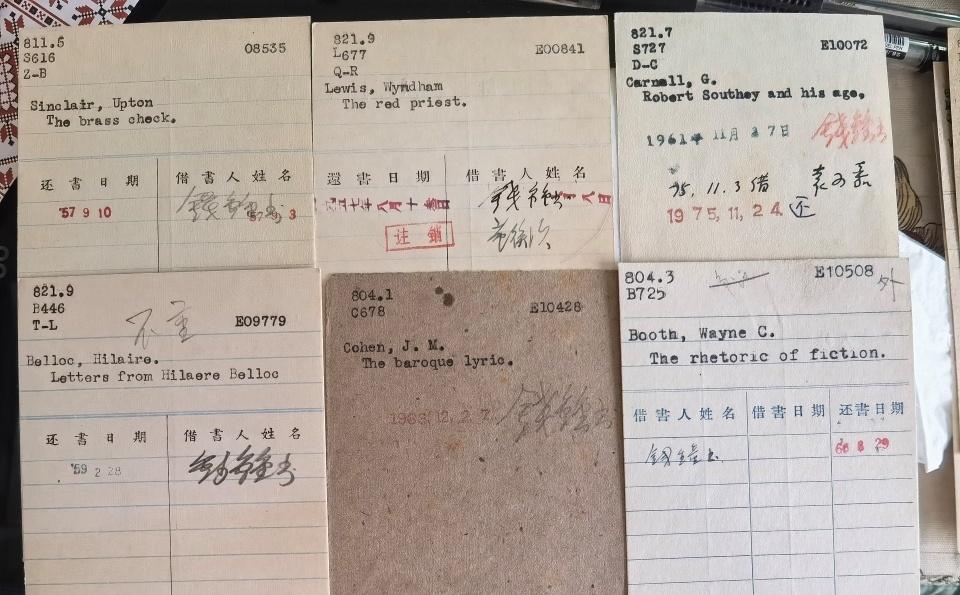 811.5 08535
S616
Z-B
Sinclair, Upton
The brass check.
还书日期 借书人姓名
'57 9 10 錢鍾書
821.9 E00841
L677
Q-R
Lewis, Wyndham
The red priest.
還書日期 借書人姓名
錢鍾書
注銷
821.7 E10072
S727
D-C
Carnall, G.
Robert Southey and his age.
1961年 11月 27日 錢鍾書
75.11.3借
1975,11,24 还
821.9
B446
T-L E09779
不重
Belloc, Hilaire.
Letters from Hilaere Belloc
还书日期 借书人姓名
'59 2 28 錢鍾書
804.1 E10428
C678
Cohen, J. M.
The baroque lyric.
1963,12,27 錢鍾書
804.3 E10508 外
B725
Booth, Wayne C.
The rhetoric of fiction.
借書人姓名 借書日期 还書日期
錢鍾書 66 8 29